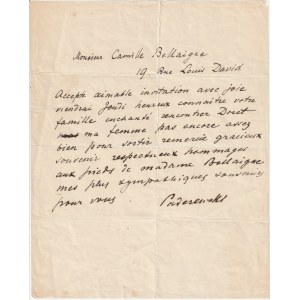 Monsieur Camille Bellaigue
19 Rue Louis David
Accepte aimable invitation avec joie
viendrai Jeudi heureux connaître votre
famille enchanté rencontrer Doret
ma femme pas encore assez
bien pour sortir remercie gracieux
souvenir respectueux hommages
aux pieds de madame Bellaigue
mes plus sympathiques souvenirs
pour vous Paderewski